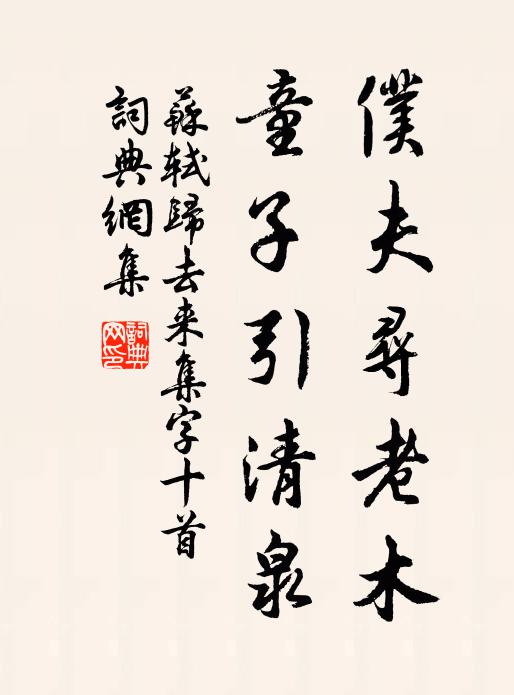 僕夫尋老木
童子引清泉
蘇軾歸去来集字十首
詞典網集
詞典網印